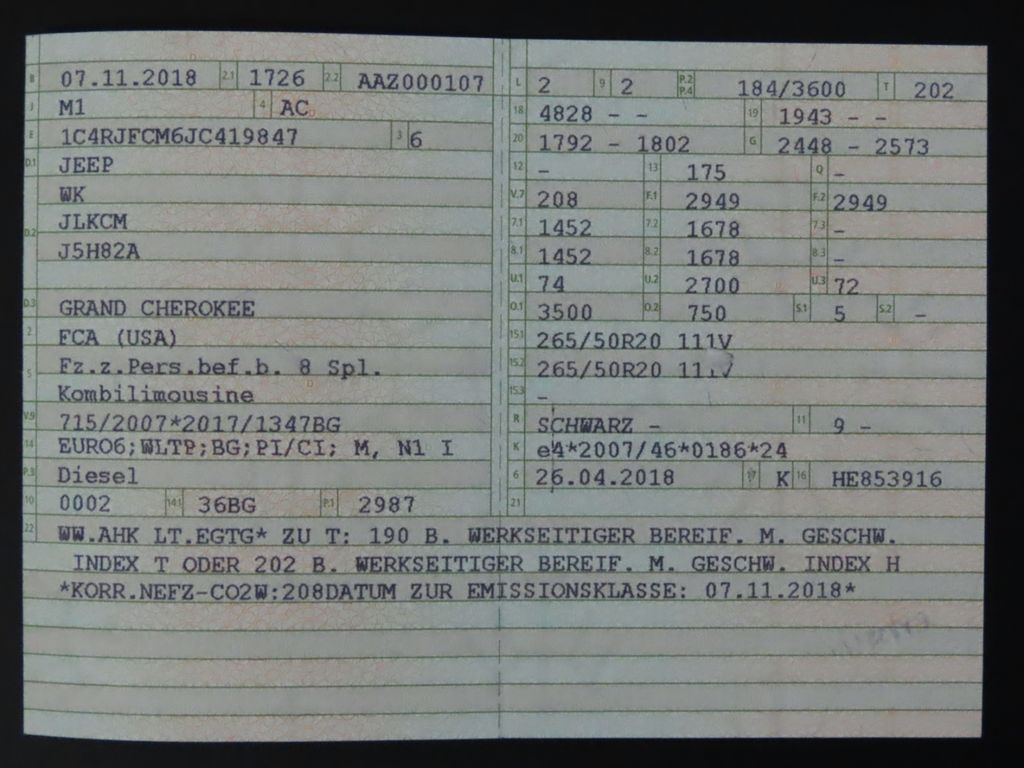 B 07.11.2018 2.1 1726 2.2 AAZ000107
J M1 4 AC
E 1C4RJFCM6JC419847 3 6
D.1 JEEP
WK
D.2 JLKCM
J5H82A
D.3 GRAND CHEROKEE
2 FCA (USA)
5 Fz.z.Pers.bef.b. 8 Spl.
Kombilimousine
V.9 715/2007*2017/1347BG
14 EURO6;WLTP;BG;PI/CI; M, N1 I
P.3 Diesel
10 0002 14.1 36BG P.1 2987
L 2 9 2 P.2 P.4 184/3600 T 202
18 4828 - - 19 1943 - -
20 1792 - 1802 G 2448 - 2573
12 - 13 175 Q -
V.7 208 F.1 2949 F.2 2949
7.1 1452 7.2 1678 7.3 -
8.1 1452 8.2 1678 8.3 -
U.1 74 U.2 2700 U.3 72
O.1 3500 O.2 750 S.1 5 S.2 -
15.1 265/50R20 111V
15.2 265/50R20
15.3 -
R SCHWARZ - 11 9 -
K e4*2007/46*0186*24
6 26.04.2018 17 K 16 HE853916
21
22 WW.AHK LT.EGTG* ZU T: 190 B. WERKSEITIGER BEREIF. M. GESCHW.
INDEX T ODER 202 B. WERKSEITIGER BEREIF. M. GESCHW. INDEX H
*KORR.NEFZ-CO2W:208DATUM ZUR EMISSIONSKLASSE: 07.11.2018*